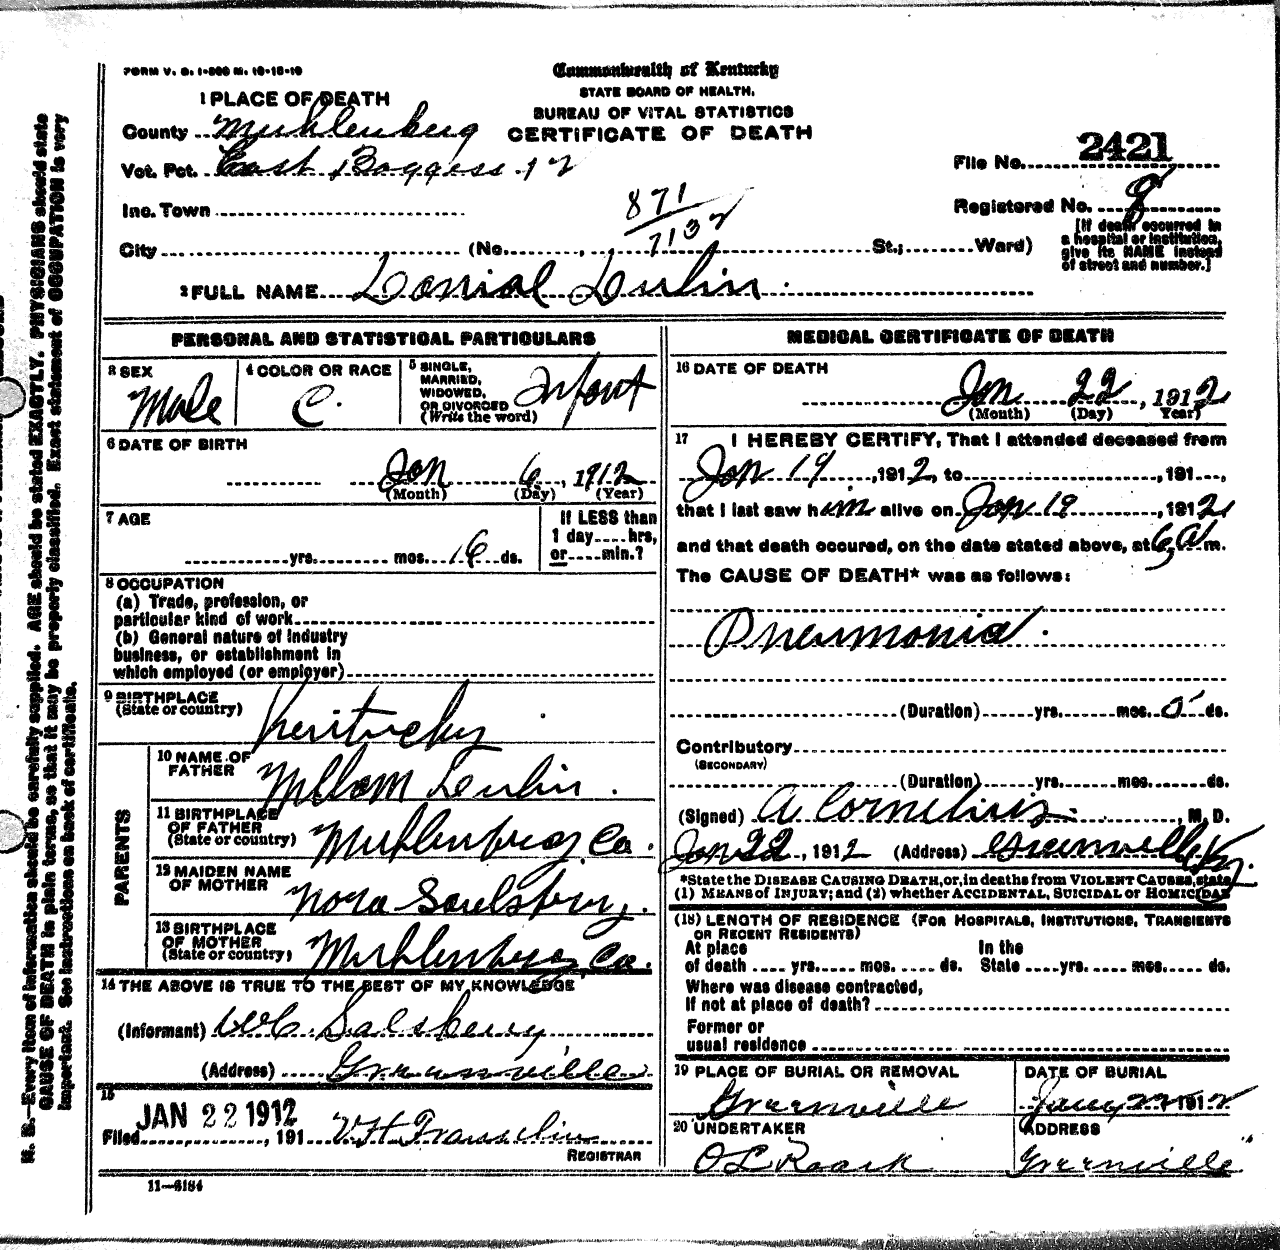 FORM V. S. 1-500 M. 10-18-10
Commonwealth of Kentucky
STATE BOARD OF HEALTH.
BUREAU OF VITAL STATISTICS
CERTIFICATE OF DEATH
1 PLACE OF DEATH
County Muhlenberg
Vot. Pct. East Boggess 12
Inc. Town
City (No. , St.; Ward)
871
7132
File No. 2421
Registered No. 8
[If death occurred in
a hospital or institution,
give its NAME instead
of street and number.]
2 FULL NAME Lonial Dulin
PERSONAL AND STATISTICAL PARTICULARS
3 SEX
Male
4 COLOR OR RACE
C.
5 SINGLE,
MARRIED,
WIDOWED,
OR DIVORCED
(Write the word)
Infant
6 DATE OF BIRTH
Jan 6, 1912
(Month) (Day) (Year)
7 AGE
yrs. mos. 16 ds.
If LESS than
1 day....hrs,
or....min.?
8 OCCUPATION
(a) Trade, profession, or
particular kind of work
(b) General nature of industry
business, or establishment in
which employed (or employer)
9 BIRTHPLACE
(State or country)
Kentucky
PARENTS
10 NAME OF
FATHER
Dulin
11 BIRTHPLACE
OF FATHER
(State or country)
Muhlenberg Co.
12 MAIDEN NAME
OF MOTHER
Nora Saulsberry.
13 BIRTHPLACE
OF MOTHER
(State or country)
Muhlenberg Co.
14 THE ABOVE IS TRUE TO THE BEST OF MY KNOWLEDGE
(Informant) WC Salsberry
(Address) Greenville
15
Filed JAN 22 1912, 191
REGISTRAR
11—6184
MEDICAL CERTIFICATE OF DEATH
16 DATE OF DEATH
Jan 22, 1912
(Month) (Day) Year)
17 I HEREBY CERTIFY, That I attended deceased from
Jan 19, 1912, to , 191...,
that I last saw him alive on Jan 19, 1912
and that death occured, on the date stated above, at 6 a m.
The CAUSE OF DEATH* was as follows:
Pneumonia.
(Duration) yrs. mos. 5 ds.
Contributory
(SECONDARY)
(Duration) yrs. mos. ds.
(Signed) A Cornelius, M. D.
Jan 22, 1912 (Address) Greenville Ky.
*State the DISEASE CAUSING DEATH, or, in deaths from VIOLENT CAUSES, state
(1) MEANS OF INJURY; and (2) whether ACCIDENTAL, SUICIDAL OR HOMICIDAL
(18) LENGTH OF RESIDENCE (FOR HOSPITALS, INSTITUTIONS, TRANSIENTS
OR RECENT RESIDENTS)
At place In the
of death .... yrs. mos. ds. State .... yrs. mos. ds.
Where was disease contracted,
If not at place of death?
Former or
usual residence
19 PLACE OF BURIAL OR REMOVAL
Greenville
DATE OF BURIAL
Jany 22 1912
20 UNDERTAKER
O L Roark
ADDRESS
Greenville
N. B.—Every item of information should be carefully supplied. AGE should be stated EXACTLY. PHYSICIANS should state
CAUSE OF DEATH in plain terms, so that it may be properly classified. Exact statement of OCCUPATION is very
important. See instructions on back of certificate.